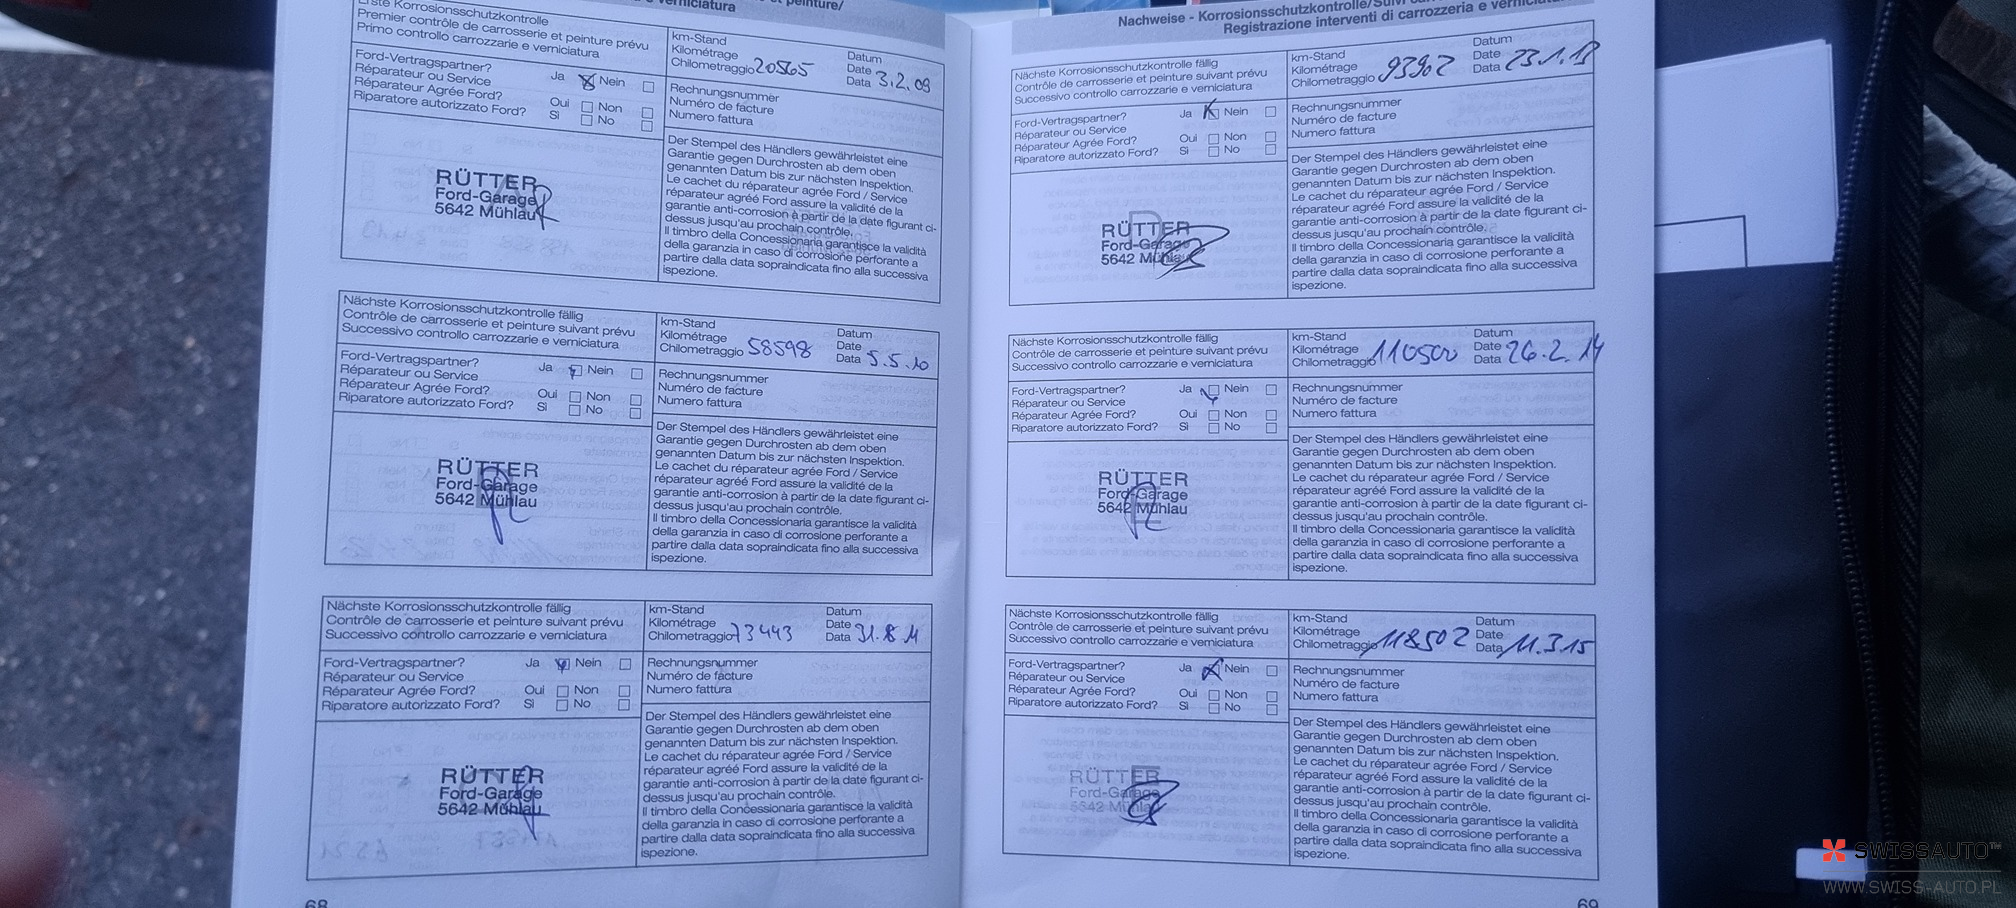 e verniciatura
et peinture/
Erste Korrosionsschutzkontrolle
Premier contrôle de carrosserie et peinture prévu
Primo controllo carrozzarie e verniciatura
km-Stand
Kilométrage
Chilometraggio 20565
Datum
Date
Data 3.2.09
Ford-Vertragspartner?
Réparateur ou Service
Réparateur Agrée Ford?
Riparatore autorizzato Ford?
Ja Nein
Oui Non
Sì No
Rechnungsnummer
Numéro de facture
Numero fattura
RÜTTER
Ford-Garage
5642 Mühlau
Der Stempel des Händlers gewährleistet eine
Garantie gegen Durchrosten ab dem oben
genannten Datum bis zur nächsten Inspektion.
Le cachet du réparateur agrée Ford / Service
réparateur agréé Ford assure la validité de la
garantie anti-corrosion à partir de la date figurant ci-
dessus jusqu'au prochain contrôle.
Il timbro della Concessionaria garantisce la validità
della garanzia in caso di corrosione perforante a
partire dalla data sopraindicata fino alla successiva
ispezione.
Nächste Korrosionsschutzkontrolle fällig
Contrôle de carrosserie et peinture suivant prévu
Successivo controllo carrozzarie e verniciatura
km-Stand
Kilométrage
Chilometraggio 58598
Datum
Date
Data 5.5.10
Ford-Vertragspartner?
Réparateur ou Service
Réparateur Agrée Ford?
Riparatore autorizzato Ford?
Ja Nein
Oui Non
Sì No
Rechnungsnummer
Numéro de facture
Numero fattura
RÜTTER
Ford-Garage
5642 Mühlau
Der Stempel des Händlers gewährleistet eine
Garantie gegen Durchrosten ab dem oben
genannten Datum bis zur nächsten Inspektion.
Le cachet du réparateur agrée Ford / Service
réparateur agréé Ford assure la validité de la
garantie anti-corrosion à partir de la date figurant ci-
dessus jusqu'au prochain contrôle.
Il timbro della Concessionaria garantisce la validità
della garanzia in caso di corrosione perforante a
partire dalla data sopraindicata fino alla successiva
ispezione.
Nächste Korrosionsschutzkontrolle fällig
Contrôle de carrosserie et peinture suivant prévu
Successivo controllo carrozzarie e verniciatura
km-Stand
Kilométrage
Chilometraggio 73443
Datum
Date
Data 31.8.11
Ford-Vertragspartner?
Réparateur ou Service
Réparateur Agrée Ford?
Riparatore autorizzato Ford?
Ja Nein
Oui Non
Sì No
Rechnungsnummer
Numéro de facture
Numero fattura
RÜTTER
Ford-Garage
5642 Mühlau
Der Stempel des Händlers gewährleistet eine
Garantie gegen Durchrosten ab dem oben
genannten Datum bis zur nächsten Inspektion.
Le cachet du réparateur agrée Ford / Service
réparateur agréé Ford assure la validité de la
garantie anti-corrosion à partir de la date figurant ci-
dessus jusqu'au prochain contrôle.
Il timbro della Concessionaria garantisce la validità
della garanzia in caso di corrosione perforante a
partire dalla data sopraindicata fino alla successiva
ispezione.
68
Nachweise - Korrosionsschutzkontrolle/Suivi
Registrazione interventi di carrozzeria e
Nächste Korrosionsschutzkontrolle fällig
Contrôle de carrosserie et peinture suivant prévu
Successivo controllo carrozzarie e verniciatura
km-Stand
Kilométrage
Chilometraggio 93902
Datum
Date
Data 23.1.13
Ford-Vertragspartner?
Réparateur ou Service
Réparateur Agrée Ford?
Riparatore autorizzato Ford?
Ja Nein
Oui Non
Sì No
Rechnungsnummer
Numéro de facture
Numero fattura
D
RÜTTER
Ford-Garage
5642 Mühlau
Der Stempel des Händlers gewährleistet eine
Garantie gegen Durchrosten ab dem oben
genannten Datum bis zur nächsten Inspektion.
Le cachet du réparateur agrée Ford / Service
réparateur agréé Ford assure la validité de la
garantie anti-corrosion à partir de la date figurant ci-
dessus jusqu'au prochain contrôle.
Il timbro della Concessionaria garantisce la validità
della garanzia in caso di corrosione perforante a
partire dalla data sopraindicata fino alla successiva
ispezione.
Nächste Korrosionsschutzkontrolle fällig
Contrôle de carrosserie et peinture suivant prévu
Successivo controllo carrozzarie e verniciatura
km-Stand
Kilométrage
Chilometraggio 110500
Datum
Date
Data 26.2.14
Ford-Vertragspartner?
Réparateur ou Service
Réparateur Agrée Ford?
Riparatore autorizzato Ford?
Ja Nein
Oui Non
Sì No
Rechnungsnummer
Numéro de facture
Numero fattura
RÜTTER
Ford-Garage
5642 Mühlau
Der Stempel des Händlers gewährleistet eine
Garantie gegen Durchrosten ab dem oben
genannten Datum bis zur nächsten Inspektion.
Le cachet du réparateur agrée Ford / Service
réparateur agréé Ford assure la validité de la
garantie anti-corrosion à partir de la date figurant ci-
dessus jusqu'au prochain contrôle.
Il timbro della Concessionaria garantisce la validità
della garanzia in caso di corrosione perforante a
partire dalla data sopraindicata fino alla successiva
ispezione.
Nächste Korrosionsschutzkontrolle fällig
Contrôle de carrosserie et peinture suivant prévu
Successivo controllo carrozzarie e verniciatura
km-Stand
Kilométrage
Chilometraggio 118502
Datum
Date
Data 11.3.15
Ford-Vertragspartner?
Réparateur ou Service
Réparateur Agrée Ford?
Riparatore autorizzato Ford?
Ja Nein
Oui Non
Sì No
Rechnungsnummer
Numéro de facture
Numero fattura
RÜTTER
Ford-Garage
5642 Mühlau
Der Stempel des Händlers gewährleistet eine
Garantie gegen Durchrosten ab dem oben
genannten Datum bis zur nächsten Inspektion.
Le cachet du réparateur agrée Ford / Service
réparateur agréé Ford assure la validité de la
garantie anti-corrosion à partir de la date figurant ci-
dessus jusqu'au prochain contrôle.
Il timbro della Concessionaria garantisce la validità
della garanzia in caso di corrosione perforante a
partire dalla data sopraindicata fino alla successiva
ispezione.
69
SWISSAUTO™
WWW.SWISS-AUTO.PL